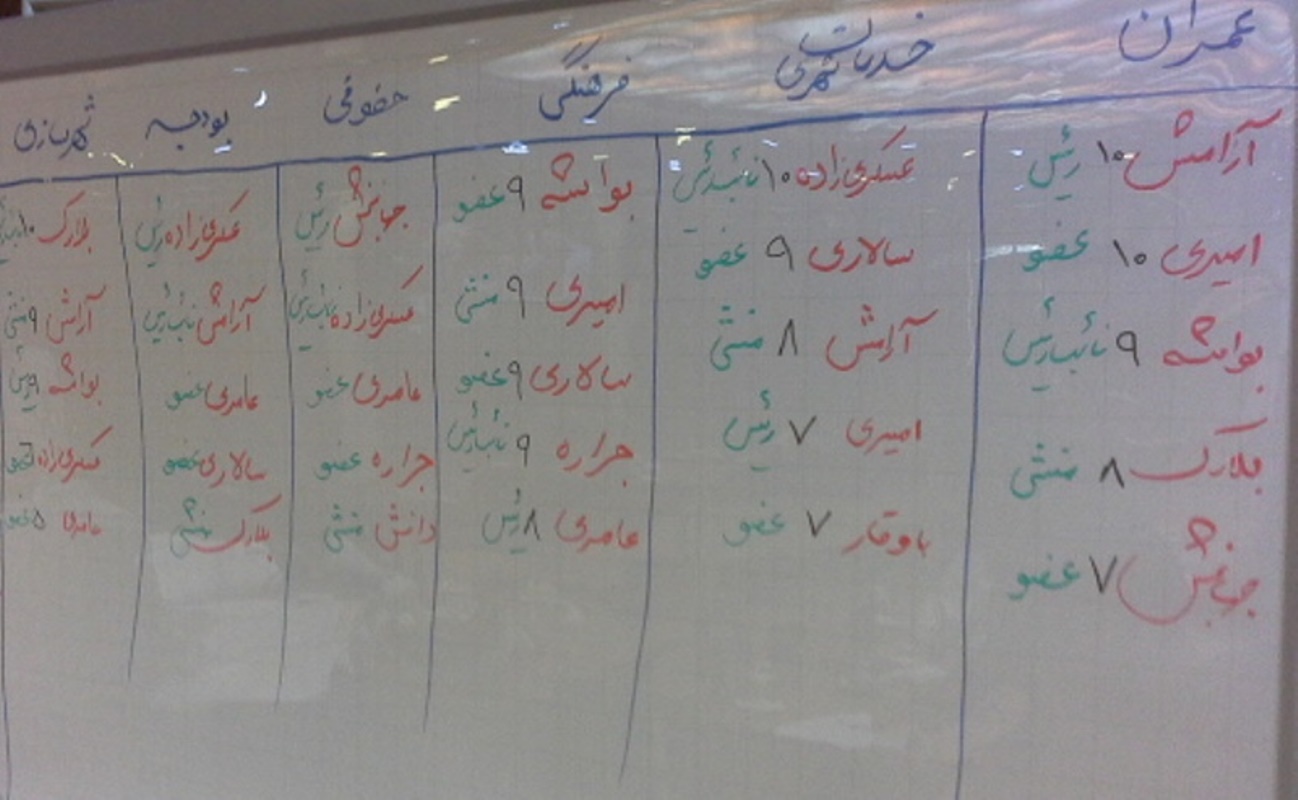 عمران
آرامش ۱۰ رئیس
امیری ۱۰ عضو
بواشه ۹ نائب رئیس
بلارک ۸ منشی
جهانبخش ۷ عضو
خدمات شهری
عسکری زاده ۱۰ نائب رئیس
سالاری ۹ عضو
آرامش ۸ منشی
امیری ۷ رئیس
باوقار ۷ عضو
فرهنگی
بواشه ۹ عضو
امیری ۹ منشی
سالاری ۹ عضو
جراره ۹ نائب رئیس
عامری ۸ رئیس
حقوقی
جهانبخش رئیس
عسکری زاده نائب رئیس
عامری عضو
جراره عضو
دانش منشی
بودجه
عسکری زاده رئیس
آرامش نائب رئیس
عامری عضو
سالاری عضو
بلارک منشی
شهرسازی
بلارک ۱۰
آرامش ۹ منشی
بواشه ۹ رئیس
عسکری زاده عضو
عامری ۵ عضو